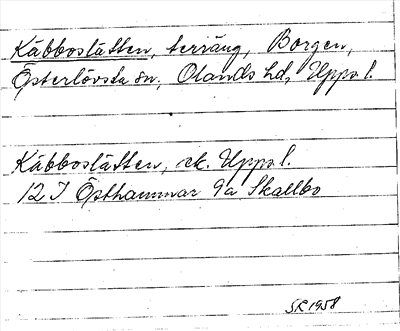 Kabbostätten, terräng, Borgen,
Österlövsta sn, Olands hd, Upps. l.
Käbboslätten, ek. Upps. l.
12 I Östhammar 9a Skallbo
SR 1958